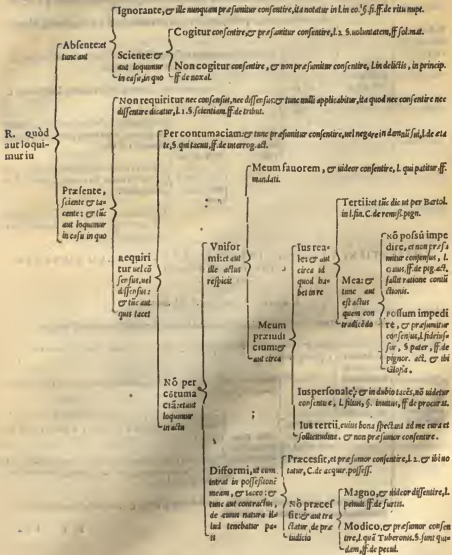 Ignorante, & ille nunquam præsumitur consentire, ita notatur in l. in eo. §. fi. ff. de ritu nupt.
Absente: et
tunc aut
Sciente: &
aut loquimur
in casu, in quo
Cogitur consentire, & præsumitur consentire, l. 2. §. voluntatem, ff. sol. mat.
Non cogitur consentire, & non præsumitur consentire, l. in delictis, in princip.
ff. de noxal.
R. quòd
aut loqui-
mur in
Præsente,
sciente & ta-
cente: & tūc
aut loquimur
in casu in quo
Non requiritur nec consensus, nec dissensus: & tunc nulli applicabitur, ita quod nec consentire nec
dissentire dicatur, l. 1. §. scientiam. ff. de tribut.
Requiri
tur uel cō
sensus, uel
dissensus:
& tūc aut
quis tacet
Per contumaciam: & tunc præsumitur consentire, uel negare in damnū sui, l. de æta
te, §. qui tacuit, ff. de interrog. act.
Nō per
cōtuma
ciā: et aut
loquimur
in actu
Vnifor
mi: et aut
ille actus
respicit
Meum fauorem, & uideor consentire, l. qui patitur. ff.
mandati.
Meum
præiudi
cium: &
aut circa
Ius rea-
le: & aut
circa id
quod ha-
bet in re
Tertii: et tūc dic ut per Bartol.
in l. fin. C. de remiss. pign.
Mea: &
tunc aut
est actus
quem con
tradicēdo
Nō possū impe
dire, et non præsu
mitur consensus, l.
Gaius, ff. de pig. act.
fallit ratione coniū
ctionis.
Possum impedi
re, & præsumitur
consensus, l. fideius
sor, §. pater, ff. de
pignor. act. & ibi
Glossa.
Ius personale, & in dubio tacēs, nō uidetur
consentire, l. filius, §. inuitus, ff. de procurat.
Ius tertii, cuius bona spectant ad me cura et
sollicitudine. & non præsumor consentire.
Difformi, ut cum
intrat in possessionē
meam, & taceo: &
tunc aut contractus,
de cuius natura il-
lud tenebatur pa-
ti
Præcessit, et præsumor consentire, l. 2. & ibi no
tatur, C. de acquir. possess.
Nō præcess
sit: & aut tra
ctatur, de præ
iudicio
Magno, & uideor dissentire, l.
penult. ff. de furtis.
Modico, & præsumor consen
tire, l. quā Tuberonis. §. sunt qui-
dam, ff. de pecul.